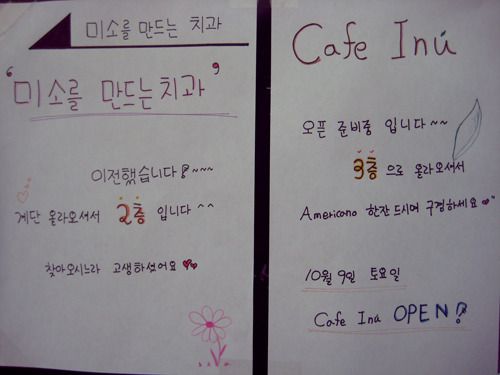 미소를 만드는 치과
'미소를 만드는 치과'
이전했습니다!~~~~
계단 올라오셔서 2층 입니다 ^^
찾아오시느라 고생하셨어요 ♥♥
Cafe Inu
오픈 준비중 입니다~~
3층 으로 올라오셔서
Americano 한잔 드시며 구경하세요 ♥"
10월 9일 토요일
Cafe Inu OPEN!